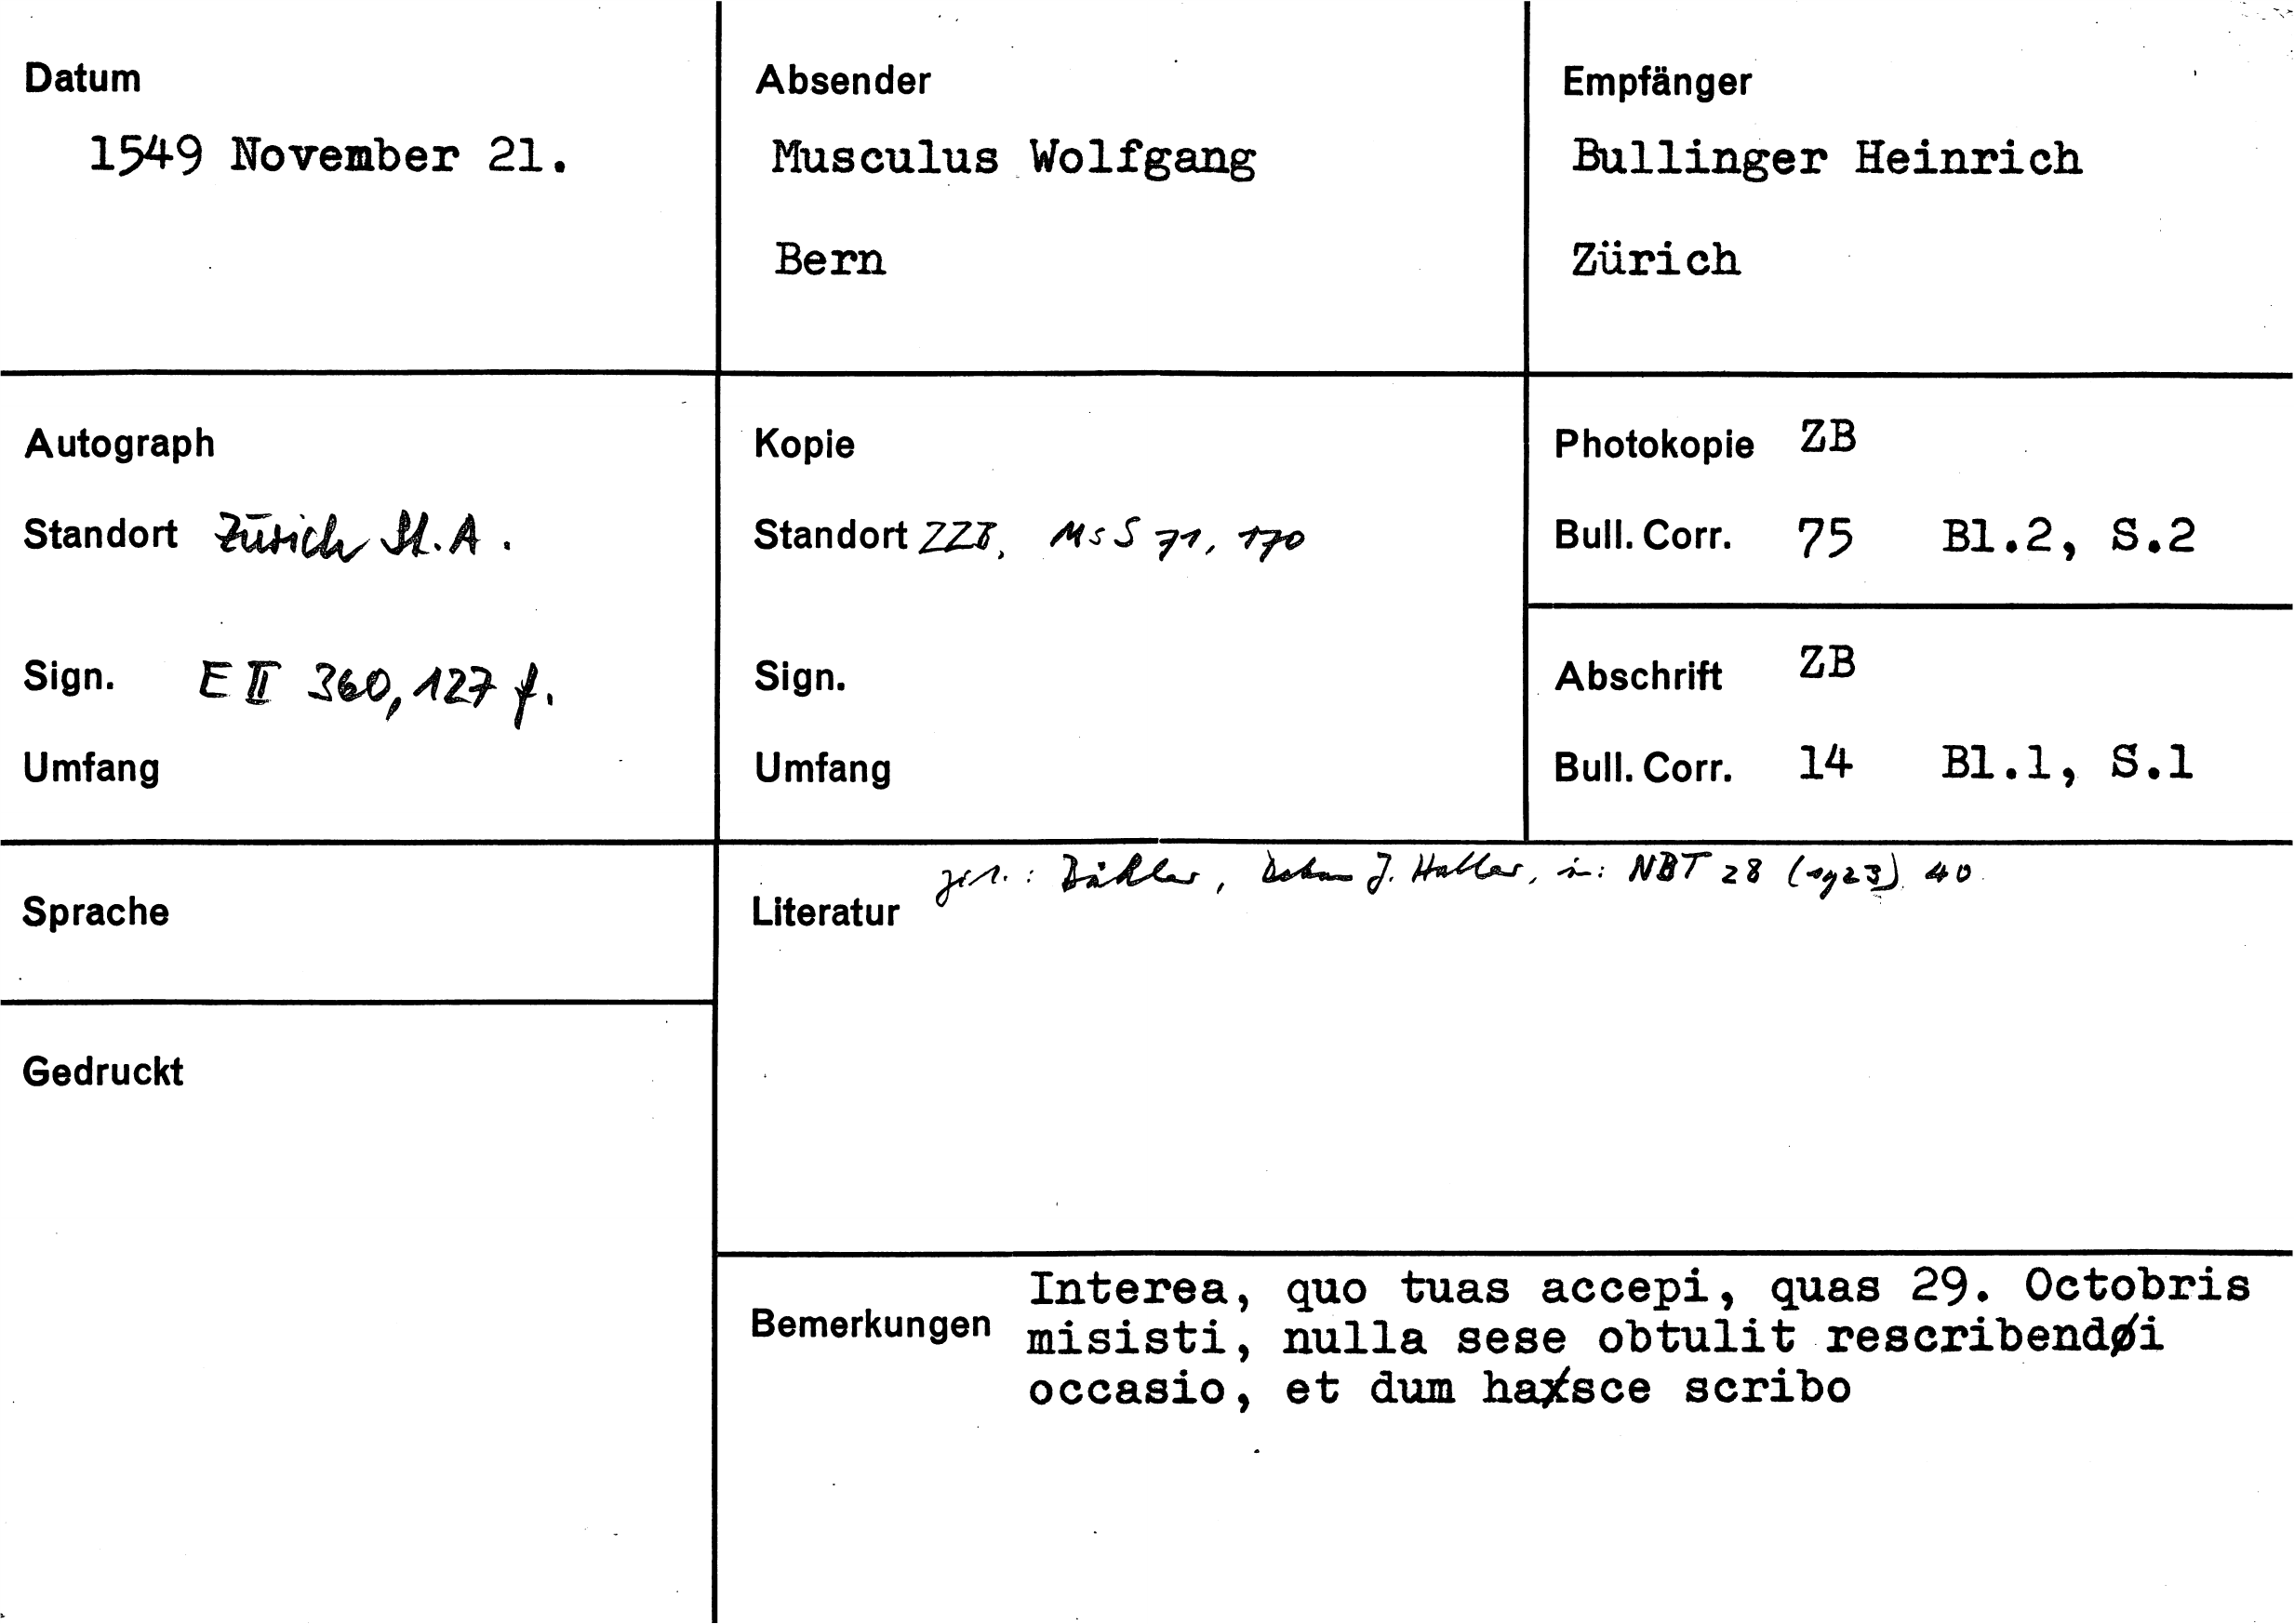 Datum
1549 November 21.
Absender
Musculus Wolfgang
Bern
Empfänger
Bullinger Heinrich
Zürich
Autograph
Standort Zürich St.A.
Sign. E II 360, 127 f.
Umfang
Kopie
Standort ZZB, Ms S 71, 170
Sign.
Umfang
Photokopie ZB
Bull. Corr. 75 Bl.2, S.2
Abschrift ZB
Bull. Corr. 14 Bl.1, S.1
Sprache
Gedruckt
Literatur
Bähler, J. Haller, in: NBT 28 (1923) 40
Bemerkungen
Interea, quo tuas accepi, quas 29. Octobris
misisti, nulla sese obtulit rescribendi
occasio, et dum hasce scribo